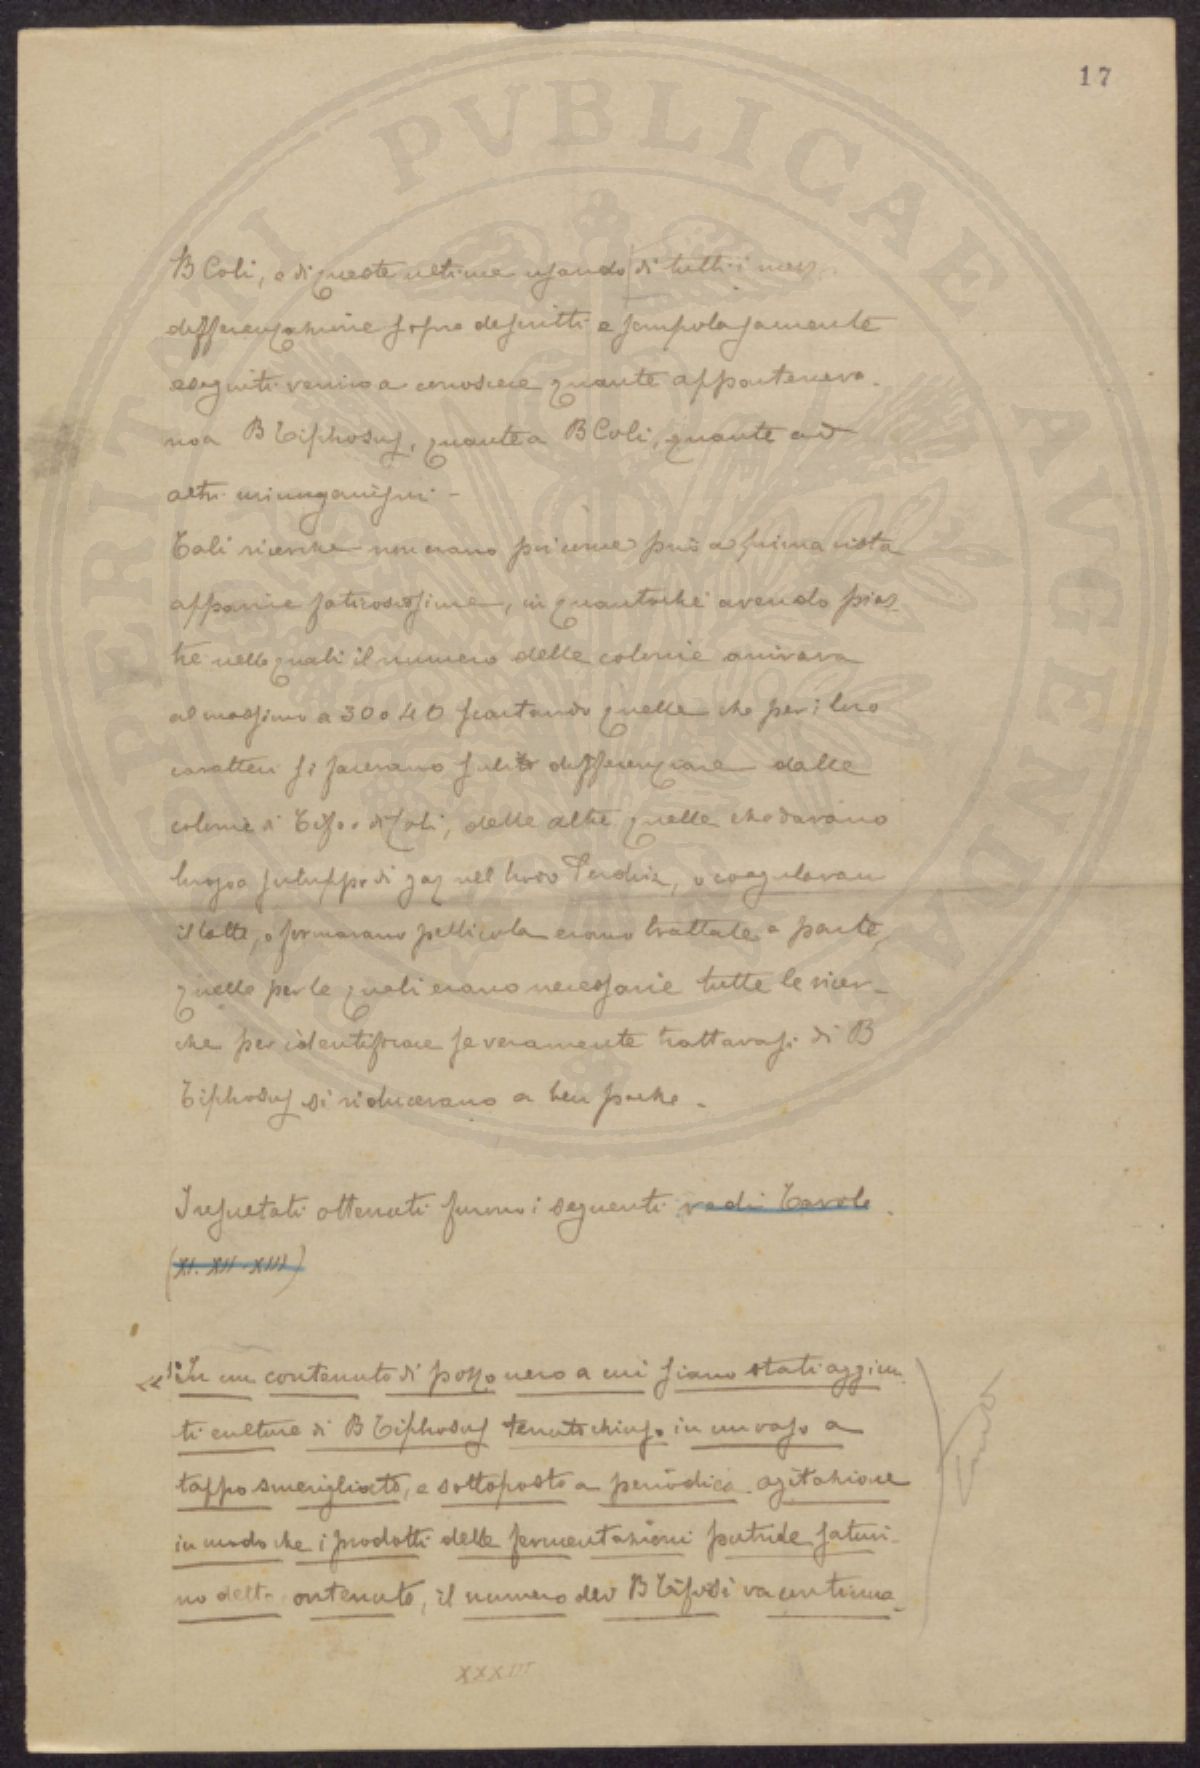 17
B Coli, e di queste ultime usando di tutti i mezz.
differenziazione sopra descritti e scrupolosamente
eseguiti veniva a conoscere quante apparteneva-
no a B Tiphosus, quante a B Coli, quante ad
altri microrganismi -
Tali ricerche non erano poi come può a prima vista
apparire faticosissime, in quantochè avendo pias-
tre nelle quali il numero delle colonie arrivava
al massimo a 30 o 40 scartando quelle che per i loro
caratteri si facevano subito differenziare dalle
colonie di Tifo e di Coli, delle altre quelle che davano
luogo a sviluppo di gaz nel brodo, o coagulavan
il latte, o formavano pellicola erano trattate a parte,
quelle per le quali erano necessarie tutte le ricer-
che per identificare se veramente trattavasi di B
Tiphosus si riducevano a ben poche.
I resultati ottenuti furono i seguenti vedi Tavole
(XI. XII. XIII)
1° In un contenuto di pozzo nero a cui siano stati aggiun-
ti culture di B Tiphosus tenuto chiuso in un vaso a
tappo smerigliato, e sottoposto a periodica agitazione
in modo che i prodotti delle fermentazioni putride saturi-
no detto contenuto, il numero dei B Tifosi va continua-
XXXIII
PROSPERITATI PVBLICAE AVGENDAE